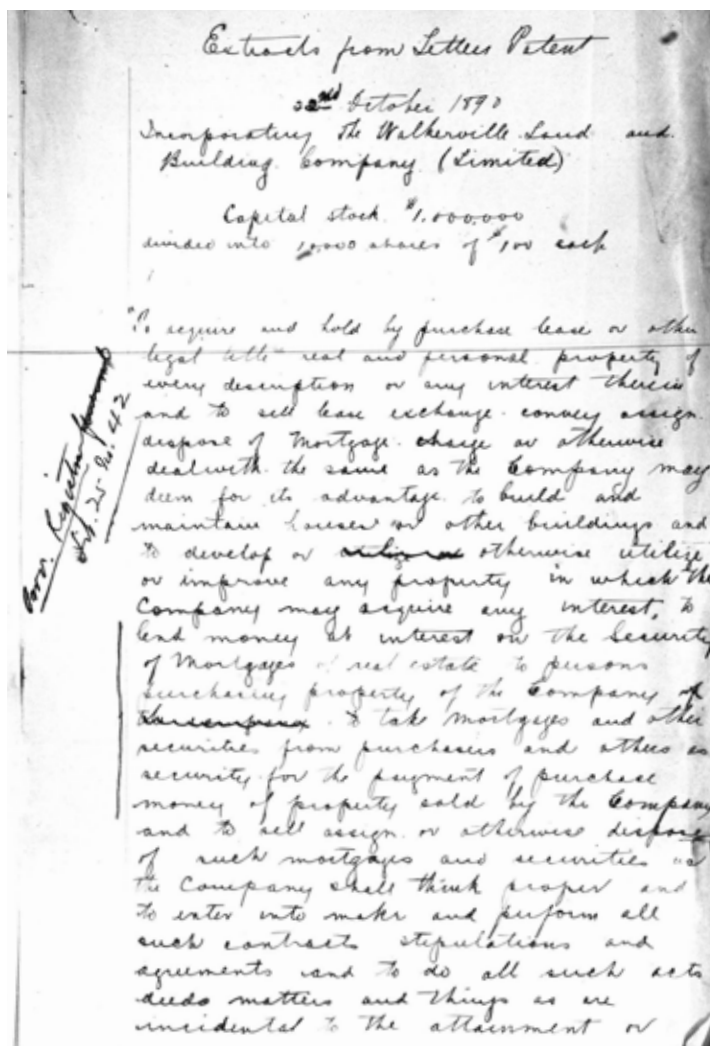 Extracts from Letters Patent
22nd October 1890
Incorporating The Walkerville Land and
Building Company (Limited)
Capital stock $1,000,000
divided into 10,000 shares of $100 each
"To acquire and hold by purchase lease or other
legal title real and personal property of
every description or any interest therein
and to sell lease exchange convey assign
dispose of Mortgage charge or otherwise
deal with the same as the Company may
deem for its advantage to build and
maintain houses or other buildings and
to develop or otherwise utilize
or improve any property in which the
Company may acquire any interest, to
lend money at interest on the Security
of Mortgages of real estate to persons
purchasing property of the Company
to take mortgages and other
securities from purchasers and others as
security for the payment of purchase
money of property sold by the Company
and to sell assign or otherwise dispose
of such mortgages and securities as
the Company shall think proper and
to enter into make and perform all
such contracts stipulations and
agreements and to do all such acts
deeds matters and things as are
incidental to the attainment or
Prov. Registrar
No. 42